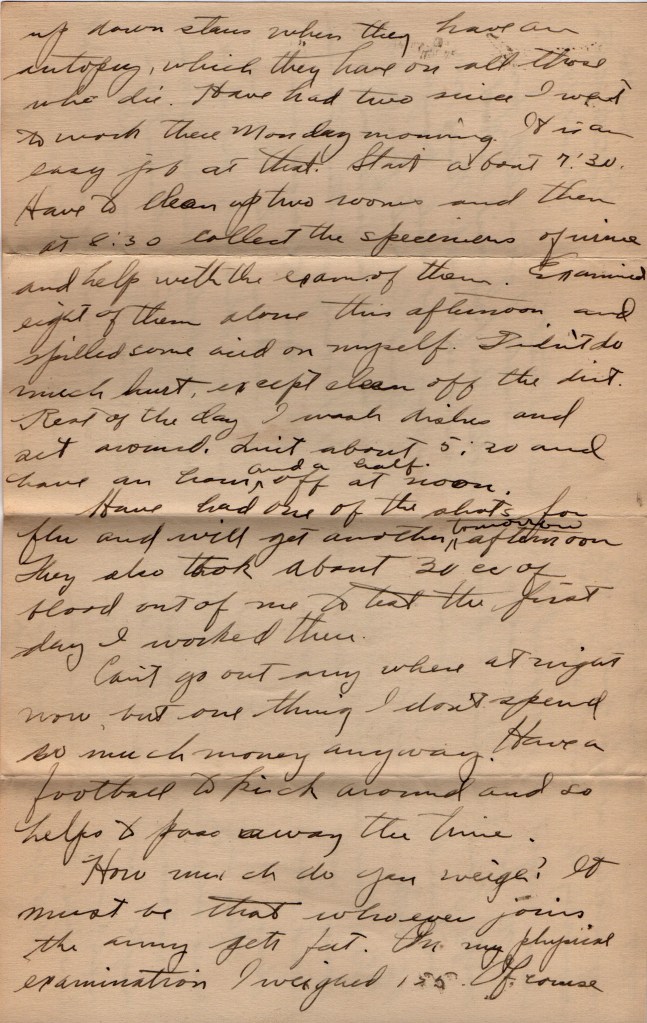 up down stairs when they have an
autopsy, which they have on all those
who die. Have had two since I went
to work there Monday morning. It is an
easy job at that. Start about 7:30.
Have to clean up two rooms and then
at 8:30 collect the specimens of urine
and help with the exam of them. Examined
eight of them alone this afternoon and
spilled some acid on myself. Didn't do
much hurt, except clean off the dirt.
Rest of the day I wash dishes and
set around. Quit about 5:20 and
have an hour and a half off at noon.
Have had one of the shots for
flu and will get another tomorrow afternoon
They also took about 30 cc of
blood out of me to test the first
day I worked there.
Can't go out any where at night
now, but one thing I don't spend
so much money anyway. Have a
football to kick around and so
helps to pass away the time.
How much do you weigh? It
must be that whoever joins
the army gets fat. On my physical
examination I weighed 155. Of course